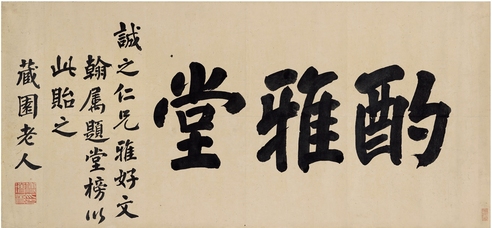 酌雅堂
誠之仁兄雅好文
翰属題堂榜以
此貽之
藏園老人